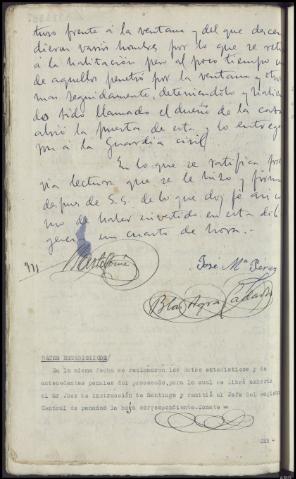 tuvo frente á la ventana y del que descen
dieron varios hombres por lo que se reti
á la habitación pero al poco tiempo u
de aquellos penetró por la ventana y otro
mas seguidamente, deteniéndolo y
do sido llamado el dueño de la casa
abrió la puerta de esta y lo entreg
ron á la Guardia civil
En lo que se ratifica pre
via lectura que se le hizo y firma
despues de S.S. de lo que doy fé así co
mo de haber invertido en esta dili
gencia un cuarto de hora.-
Jose Mª Perez
Blas
DATOS ESTADISTICOS
En la misma fecha se reclamaron los datos estadisticos y de
antecedentes penales del procesado, para lo cual se libró exhorto
al Sr Juez de instrucción de Santiago y remitió al Jefe del Registro
Central de penados la hoja correspondiente. Conste =